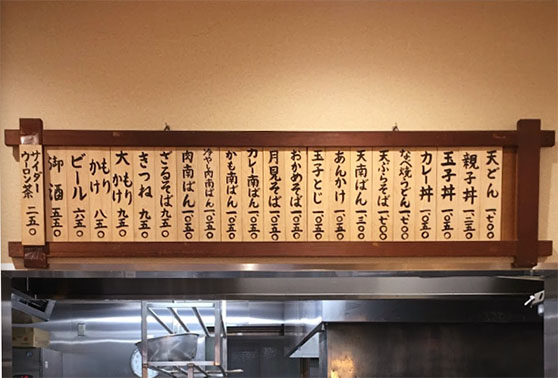 天どん 一七〇〇
親子丼 一二五〇
玉子丼 一〇五〇
カレー丼 一〇五〇
なべ焼うどん 一七〇〇
天ぷらそば 一七〇〇
天南ばん 一三〇〇
あんかけ 一〇五〇
玉子とじ 一〇五〇
おかめそば 一〇五〇
月見そば 一〇五〇
カレー南ばん 一〇五〇
かも南ばん 一二五〇
冷やし肉南ばん 一〇五〇
肉南ばん 一〇五〇
ざるそば 九五〇
きつね 九五〇
大もりかけ 九五〇
もりかけ 八五〇
ビール 六五〇
御酒 五五〇
サイダー
ウーロン茶 二五〇